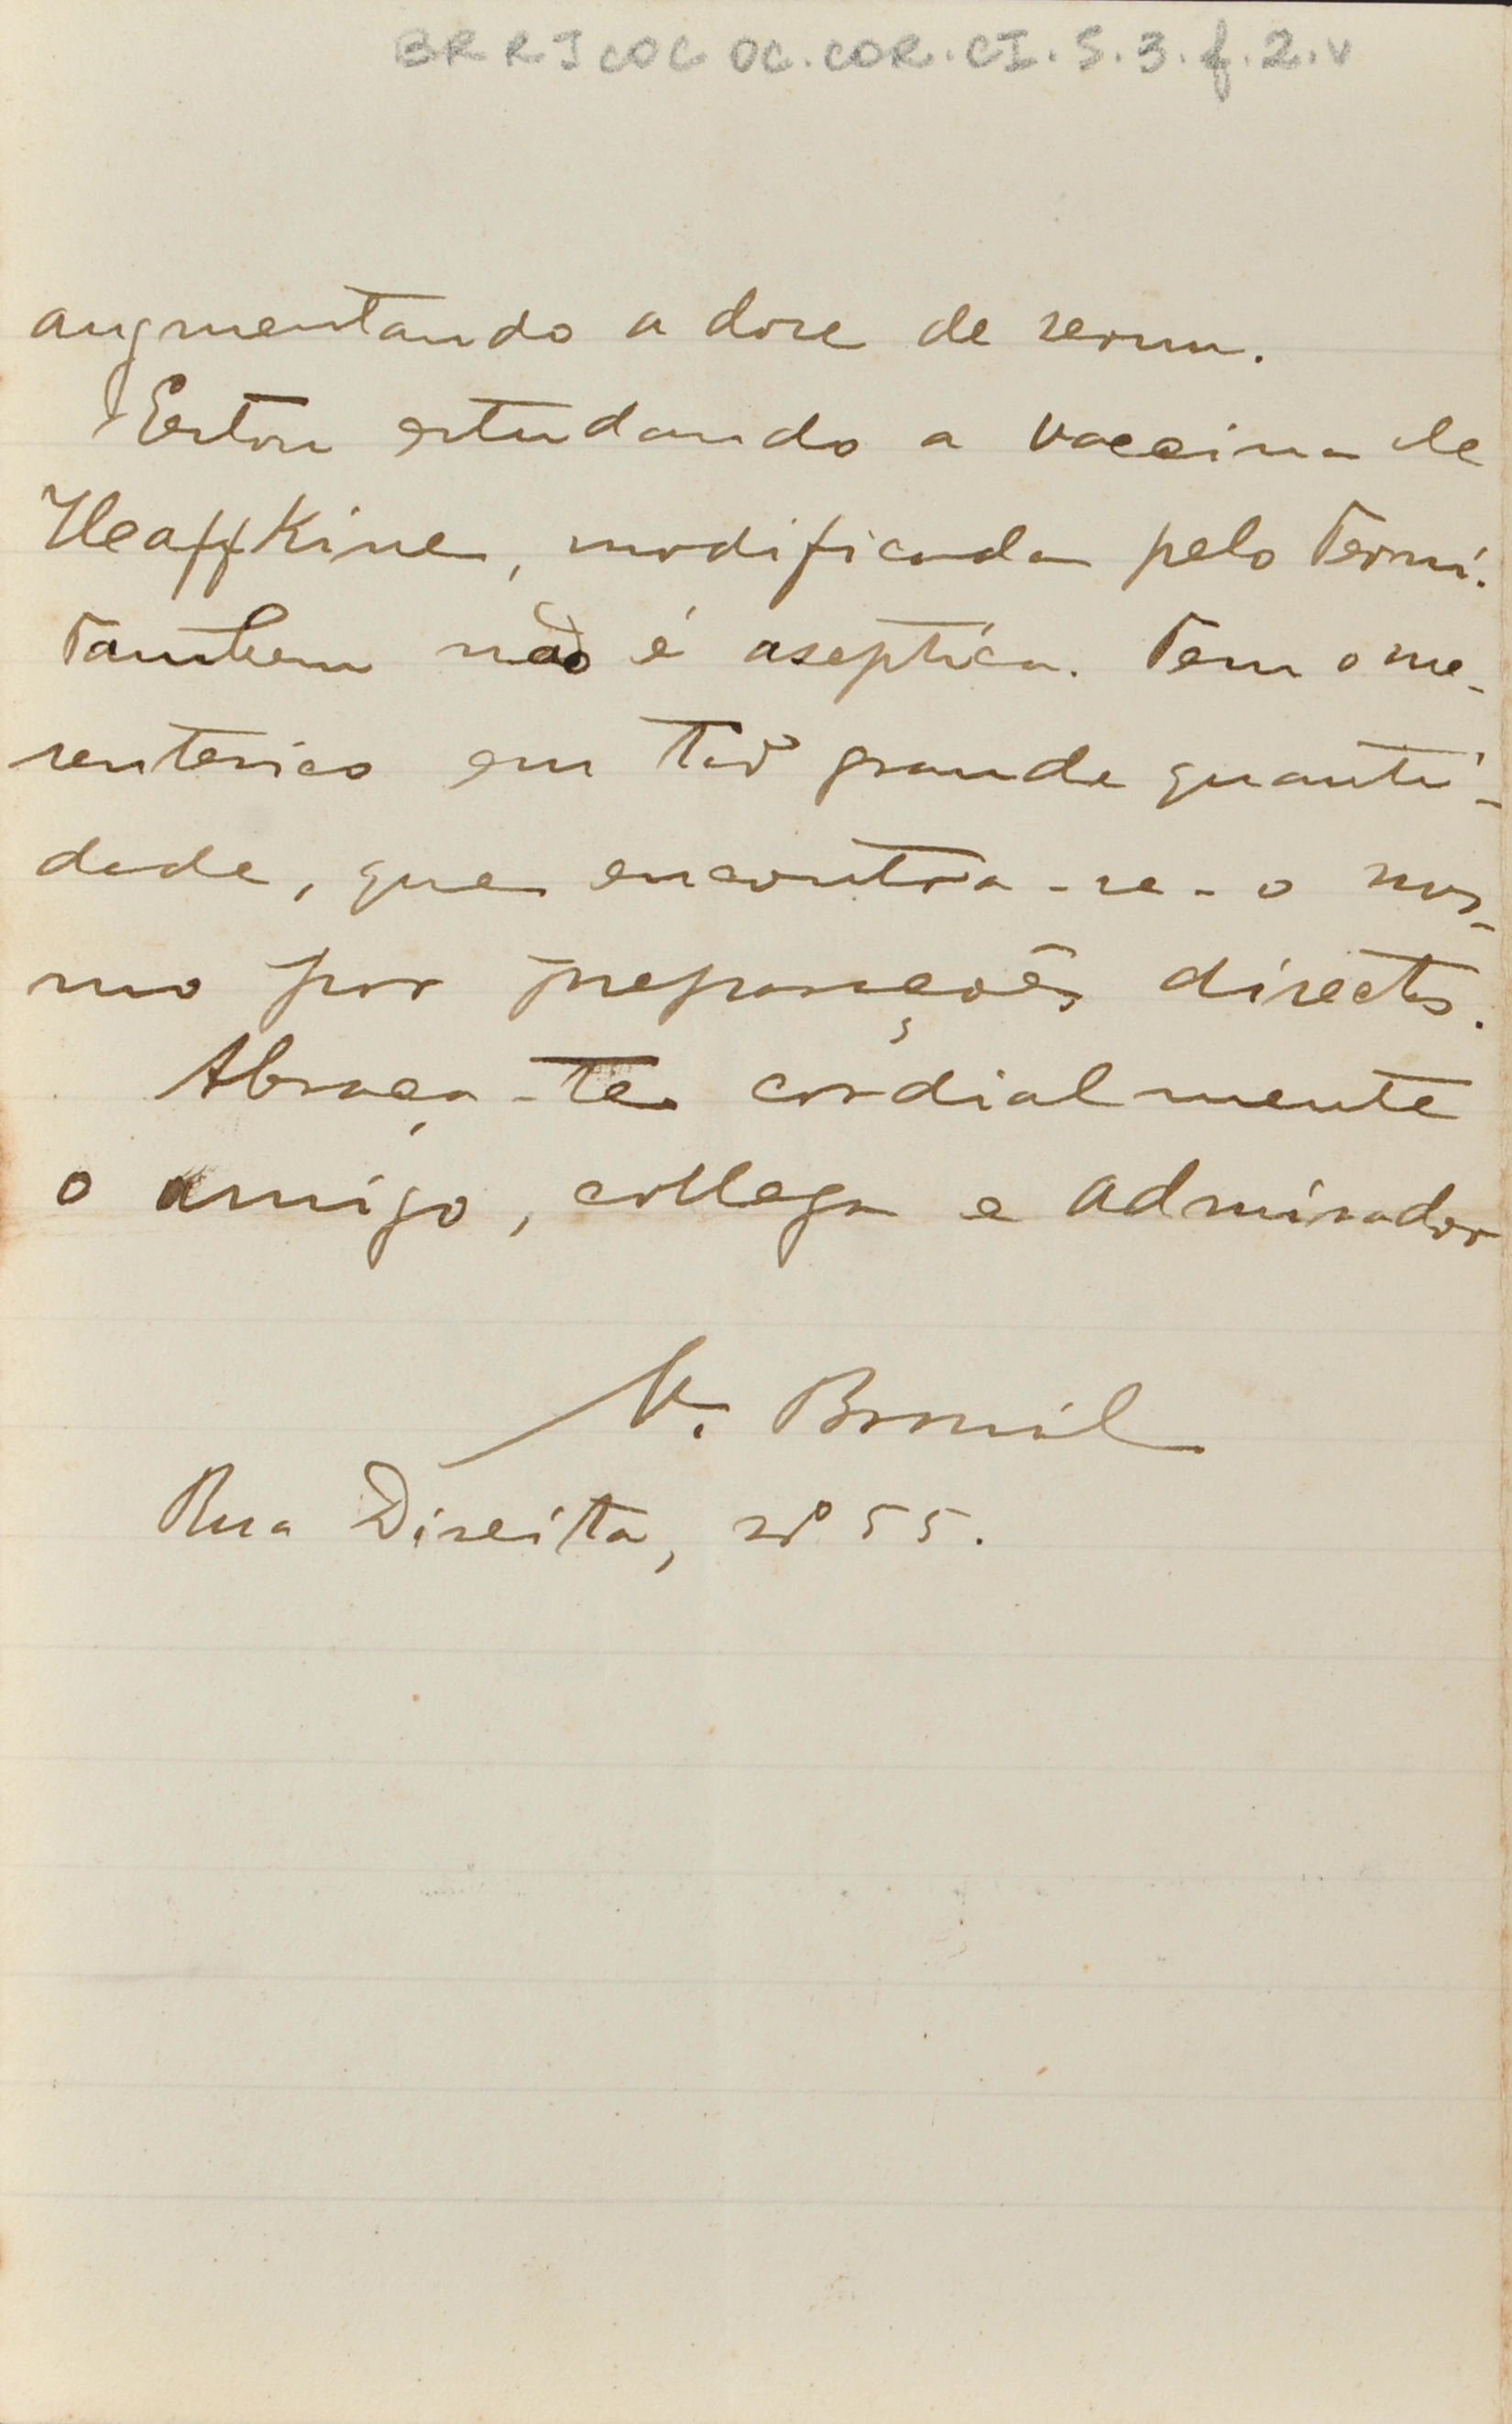 BR RJ COC OC.COR.CI.S.3.f.2.v
augmentando a dose de serum.
Estou estudando a vaccina de
Heaffkine, modificada pelo Terni.
Tambem não é aseptica. Tem o me-
senterico em tão grande quanti-
dade, que encontra-se-o mes-
mo por preparações directas.
Abraça-te cordialmente
o amigo, collega e admirador
V. Brasil
Rua Direita, nº 55.